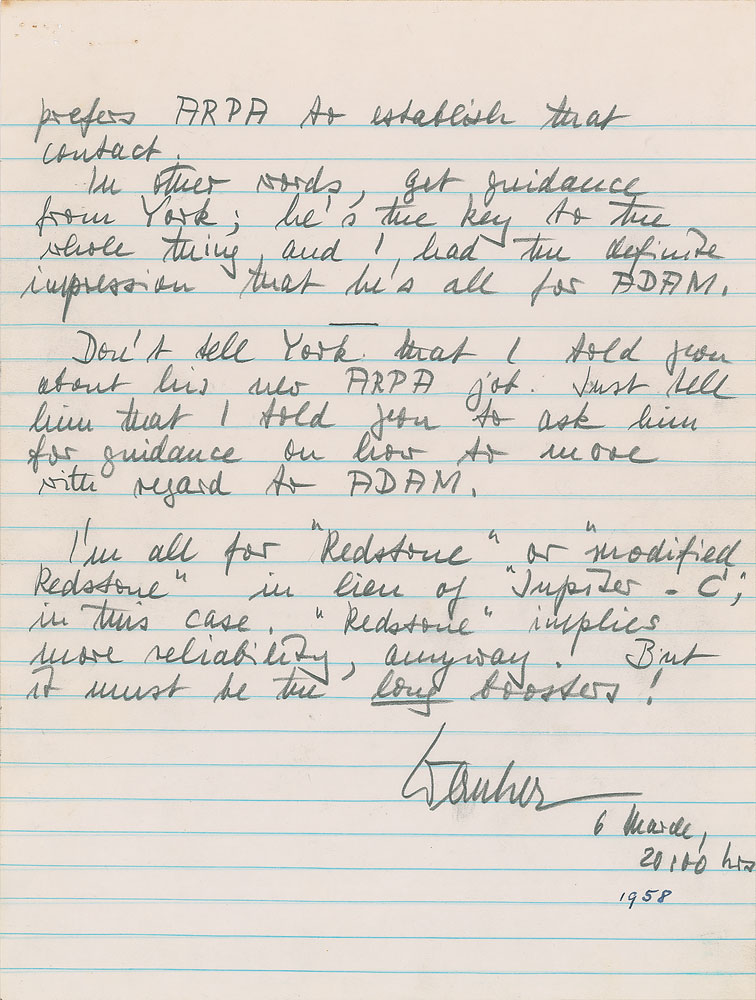 prefers ARPA to establish that
contact.
In other words, get guidance
from York; he's the key to the
whole thing, and I had the definite
impression that he's all for ADAM.
Don't tell York that I told you
about his new ARPA job. Just tell
him that I told you to ask him
for guidance on how to move
with regard to ADAM.
I'm all for "Redstone" or "modified
Redstone" in lieu of "Jupiter-C",
in this case. "Redstone" implies
more reliability, anyway. But
it must be the long boosters!
Wernher
6 March,
20:00 hrs
1958